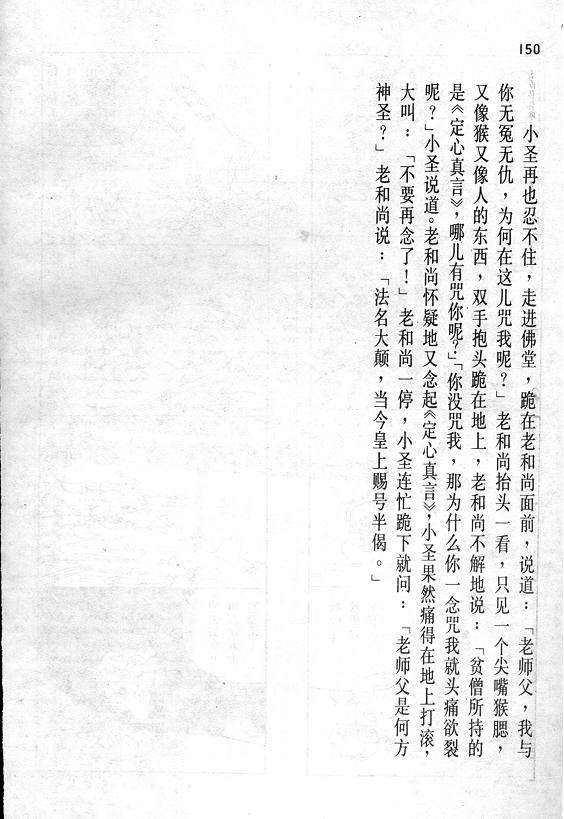 150
小圣再也忍不住，走进佛堂，跪在老和尚面前，说道：「老师父，我与
你无冤无仇，为何在这儿咒我呢？」老和尚抬头一看，只见一个尖嘴猴腮，
又像猴又像人的东西，双手抱头跪在地上，老和尚不解地说：「贫僧所持的
是《定心真言》，哪儿有咒你呢？」「你没咒我，那为什么你一念咒我就头痛欲裂
呢？」小圣说道。老和尚怀疑地又念起《定心真言》，小圣果然痛得在地上打滚，
大叫：「不要再念了！」老和尚一停，小圣连忙跪下就问：「老师父是何方
神圣？」老和尚说：「法名大颠，当今皇上赐号半偈。」